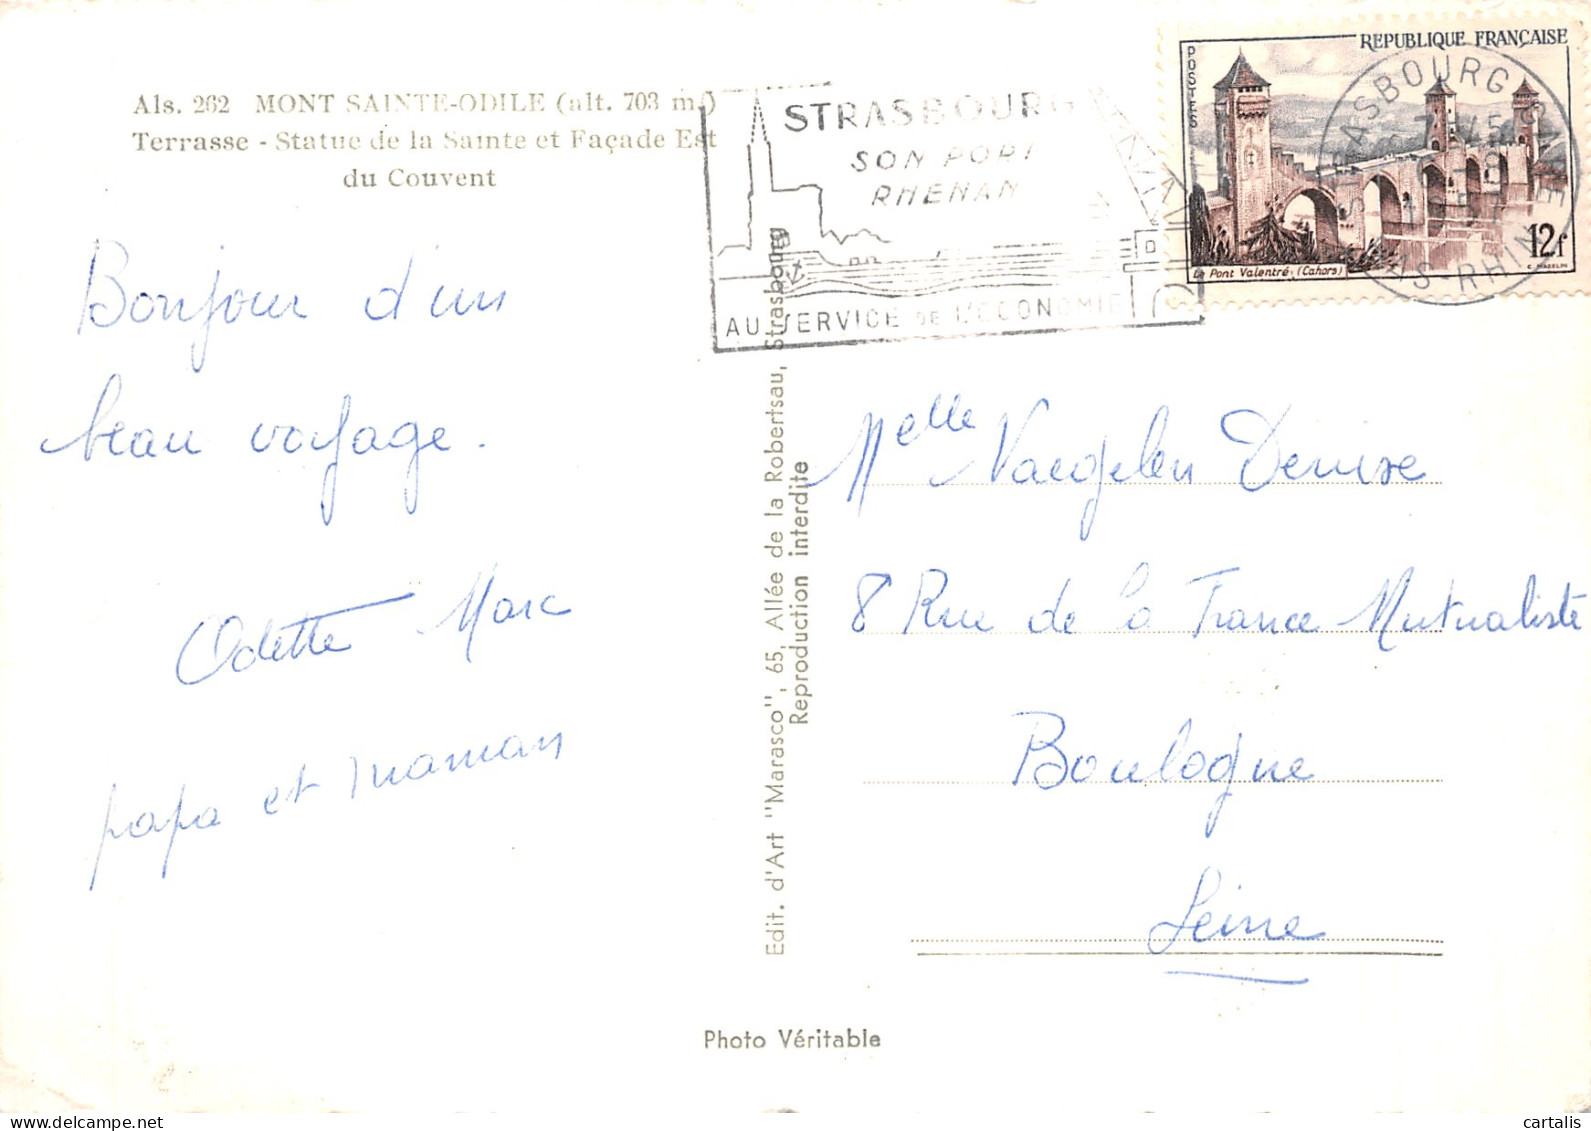 Als. 262 MONT SAINTE-ODILE (alt. 703 m.)
Terrasse - Statue de la Sainte et Façade Est
du Couvent
Bonjour d'un
beau voyage.
Odette Marc
papa et maman
STRASBOURG
SON PORT
RHENAN
AU SERVICE DE L'ECONOMIE
REPUBLIQUE FRANÇAISE
POSTES
Le Pont Valentré (Cahors)
12f
STRASBOURG GARE
BAS-RHIN
Edit. d'Art "Marasco", 65, Allée de la Robertsau, Strasbourg
Reproduction interdite
Melle Vaegelen Denise
8 Rue de la France Mutualiste
Boulogne
Seine
Photo Véritable
www.delcampe.net
cartalis